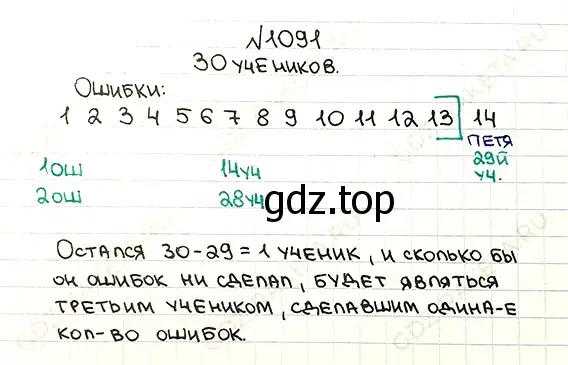 №1091
30 УЧЕНИКОВ.
ОШИБКИ:
1 2 3 4 5 6 7 8 9 10 11 12 13] 14
ПЕТЯ
29Й
УЧ.
1ОШ 14УЧ
2ОШ 28УЧ
gdz.top
ОСТАЛСЯ 30-29=1 УЧЕНИК, И СКОЛЬКО БЫ
ОН ОШИБОК НИ СДЕЛАЛ, БУДЕТ ЯВЛЯТЬСЯ
ТРЕТЬИМ УЧЕНИКОМ, СДЕЛАВШИМ ОДИНА-Е
КОЛ-ВО ОШИБОК.